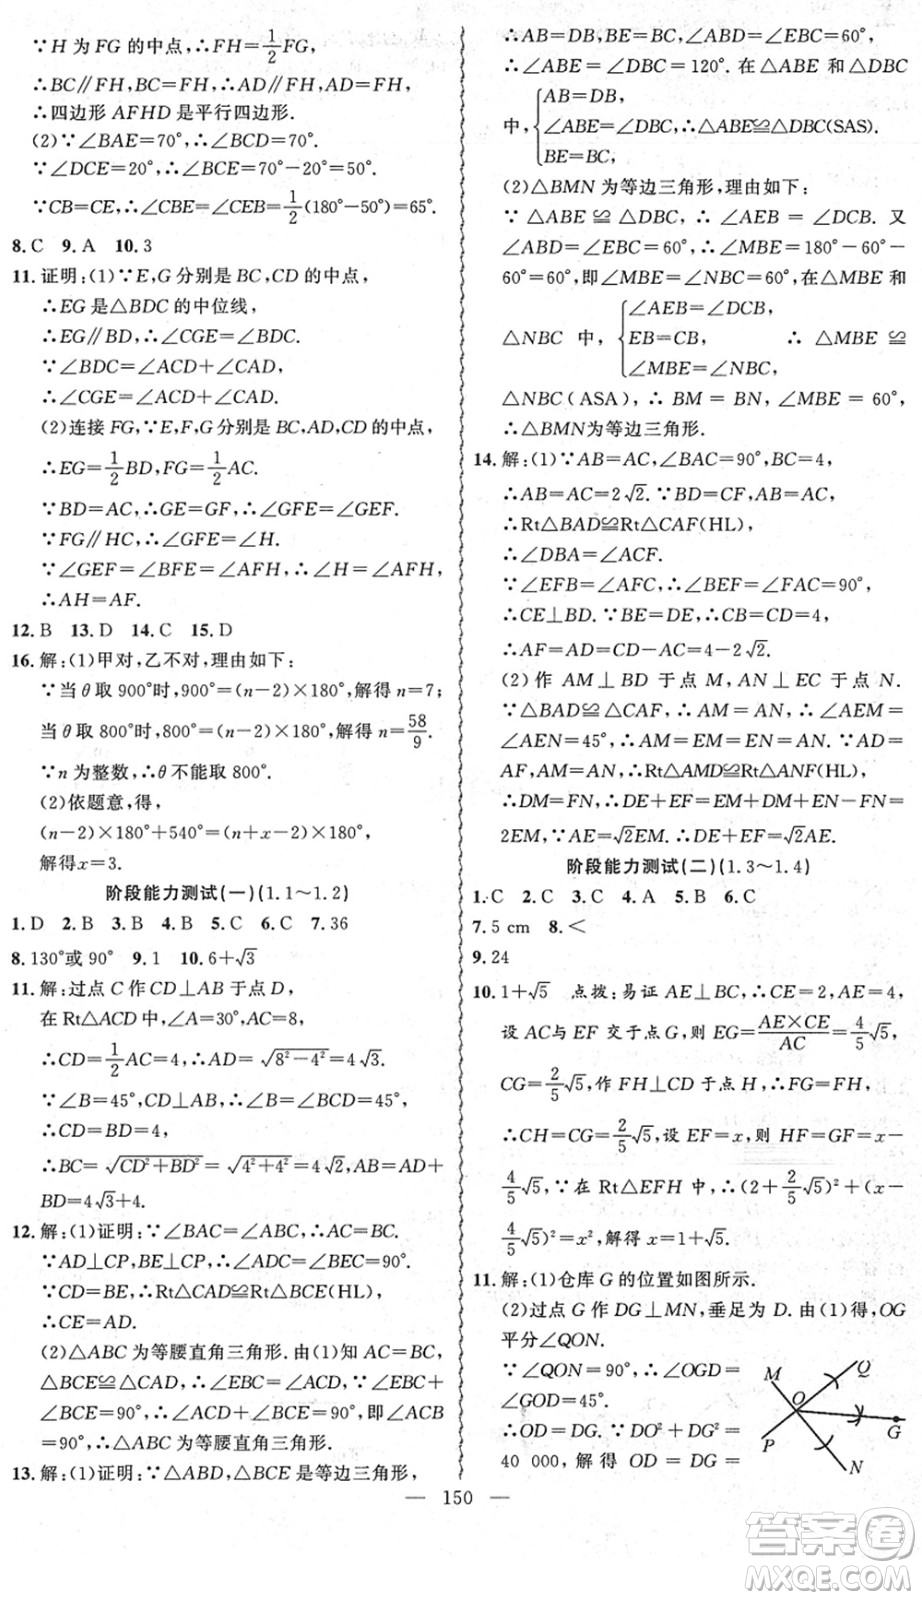 ∵H 为 FG 的中点,∴FH=1/2FG,
∴BC∥FH,BC=FH,∴AD∥FH,AD=FH,
∴四边形 AFHD 是平行四边形.
(2)∵∠BAE=70°,∴∠BCD=70°.
∵∠DCE=20°,∴∠BCE=70°-20°=50°.
∵CB=CE,∴∠CBE=∠CEB=1/2(180°-50°)=65°.
8.C 9.A 10.3
11.证明:(1)∵E,G 分别是 BC,CD 的中点,
∴EG 是△BDC 的中位线,
∴EG∥BD,∴∠CGE=∠BDC.
∵∠BDC=∠ACD+∠CAD,
∴∠CGE=∠ACD+∠CAD.
(2)连接 FG,∵E,F,G 分别是 BC,AD,CD 的中点,
∴EG=1/2BD,FG=1/2AC.
∵BD=AC,∴GE=GF,∴∠GFE=∠GEF.
∵FG∥HC,∴∠GFE=∠H.
∵∠GEF=∠BFE=∠AFH,∴∠H=∠AFH,
∴AH=AF.
12.B 13.D 14.C 15.D
16.解:(1)甲对,乙不对,理由如下:
∵当 θ 取 900°时,900°=(n-2)×180°,解得 n=7;
当 θ 取 800°时,800°=(n-2)×180°,解得 n=58/9.
∵n 为整数,∴θ 不能取 800°.
(2)依题意,得,
(n-2)×180°+540°=(n+x-2)×180°,
解得 x=3.
阶段能力测试(一)(1.1~1.2)
1.D 2.B 3.B 4.B 5.C 6.C 7.36
8.130°或 90° 9.1 10.6+√3
11.解:过点 C 作 CD⊥AB 于点 D,
在 Rt△ACD 中,∠A=30°,AC=8,
∴CD=1/2AC=4,∴AD=√(8²-4²)=4√3.
∵∠B=45°,CD⊥AB,∴∠B=∠BCD=45°,
∴CD=BD=4,
∴BC=√(CD²+BD²)=√(4²+4²)=4√2,∴AB=AD+
BD=4√3+4.
12.解:(1)证明:∵∠BAC=∠ABC,∴AC=BC.
∵AD⊥CP,BE⊥CP,∴∠ADC=∠BEC=90°.
∵CD=BE,∴Rt△CAD≌Rt△BCE(HL),
∴CE=AD.
(2)△ABC 为等腰直角三角形.由(1)知 AC=BC,
△BCE≌△CAD,∴∠CBE=∠ACD.∵∠EBC+
∠BCE=90°,∴∠ACD+∠BCE=90°,即∠ACB
=90°,∴△ABC 为等腰直角三角形.
13.解:(1)证明:∵△ABD,△BCE 是等边三角形,
∴AB=DB,BE=BC,∠ABD=∠EBC=60°,
∴∠ABE=∠DBC=120°. 在△ABE 和△DBC
中,{AB=DB,
∠ABE=∠DBC,∴△ABE≌△DBC(SAS).
BE=BC,
(2)△BMN 为等边三角形,理由如下:
∵△ABE≌△DBC,∴∠AEB=∠DCB. 又∵
∠ABD=∠EBC=60°,∴∠MBE=180°-60°-
60°=60°,即∠MBE=∠NBC=60°,在△MBE 和
△NBC 中,{∠AEB=∠DCB,
EB=CB, ∴△MBE≌
∠MBE=∠NBC,
△NBC(ASA),∴BM=BN,∠MBE=60°,
∴△BMN为等边三角形.
14.解:(1)∵AB=AC,∠BAC=90°,BC=4,
∴AB=AC=2√2.∵BD=CF,AB=AC,
∴Rt△BAD≌Rt△CAF(HL),
∴∠DBA=∠ACF.
∵∠EFB=∠AFC,∴∠BEF=∠FAC=90°,
∴CE⊥BD.∵BE=DE,∴CB=CD=4,
∴AF=AD=CD-AC=4-2√2.
(2)作 AM⊥BD 于点 M,AN⊥EC 于点 N.
∵△BAD≌△CAF,∴AM=AN,∴∠AEM=
∠AEN=45°,∴AM=EM=EN=AN.∵AD=
AF,AM=AN,∴Rt△AMD≌Rt△ANF(HL),
∴DM=FN,∴DE+EF=EM+EN=
2EM.∵AE=√2EM.∴DE+EF=√2AE.
阶段能力测试(二)(1.3~1.4)
1.C 2.C 3.C 4.A 5.B 6.C
7.5 cm 8.<
9.24
10.1+√5 点拨:易证 AE⊥BC,∴CE=2,AE=4,
设 AC与 EF 交于点 G,则 EG=AE×CE/AC=4/5√5,
CG=2/5√5,作 FH⊥CD 于点 H,∴FG=FH,
∴CH=CG=2/5√5,设 EF=x,则 HF=GF=x-
4/5√5,∵在 Rt△EFH 中,∴(2+2/5√5)²+(x-
4/5√5)²=x²,解得 x=1+√5.
11.解:(1)仓库 G 的位置如图所示.
(2)过点 G 作 DG⊥MN,垂足为 D. 由(1)得,OG
平分∠QON.
∵∠QON=90°,∴∠OGD=
∠GOD=45°.
∴OD=DG.∵DO²+DG²=
40 000,解得 OD=DG=
M
Q
O
G
P
N
— 150 —
答案圈
MXQE.COM